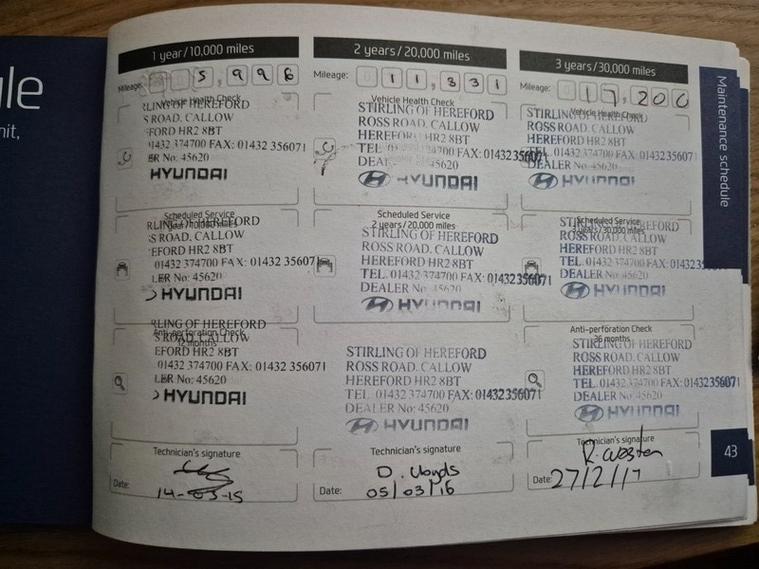 ule
nit,
1 year/10,000 miles
Mileage: 5,996
Vehicle Health Check
RLING OF HEREFORD
S ROAD, CALLOW
FORD HR2 8BT
01432 374700 FAX: 01432 356071
ER No: 45620
HYUNDAI
Scheduled Service
1 year/10,000 miles
RLING OF HEREFORD
S ROAD, CALLOW
EFORD HR2 8BT
01432 374700 FAX: 01432 356071
LER No: 45620
HYUNDAI
Anti-perforation Check
12 months
RLING OF HEREFORD
S ROAD, CALLOW
EFORD HR2 8BT
01432 374700 FAX: 01432 356071
LER No: 45620
HYUNDAI
Technician's signature
Date: 14-03-15
2 years/20,000 miles
Mileage: 011,331
Vehicle Health Check
STIRLING OF HEREFORD
ROSS ROAD, CALLOW
HEREFORD HR2 8BT
TEL. 01432 374700 FAX: 01432 356071
DEALER No: 45620
HYUNDAI
Scheduled Service
2 years/20,000 miles
STIRLING OF HEREFORD
ROSS ROAD, CALLOW
HEREFORD HR2 8BT
TEL. 01432 374700 FAX: 01432 356071
DEALER No: 45620
HYUNDAI
STIRLING OF HEREFORD
ROSS ROAD, CALLOW
HEREFORD HR2 8BT
TEL. 01432 374700 FAX: 01432 356071
DEALER No: 45620
HYUNDAI
Technician's signature
D. Lloyds
Date: 05/03/16
3 years/30,000 miles
Mileage: 017,200
Vehicle Health Check
STIRLING OF HEREFORD
ROSS ROAD, CALLOW
HEREFORD HR2 8BT
TEL. 01432 374700 FAX: 01432 356071
DEALER No: 45620
HYUNDAI
Scheduled Service
3 years/30,000 miles
STIRLING OF HEREFORD
ROSS ROAD, CALLOW
HEREFORD HR2 8BT
TEL. 01432 374700 FAX: 01432 35
DEALER No: 45620
HYUNDAI
Anti-perforation Check
36 months
STIRLING OF HEREFORD
ROSS ROAD, CALLOW
HEREFORD HR2 8BT
TEL. 01432 374700 FAX: 01432 356071
DEALER No: 45620
HYUNDAI
Technician's signature
Date: 27/2/17
Maintenance schedule
43